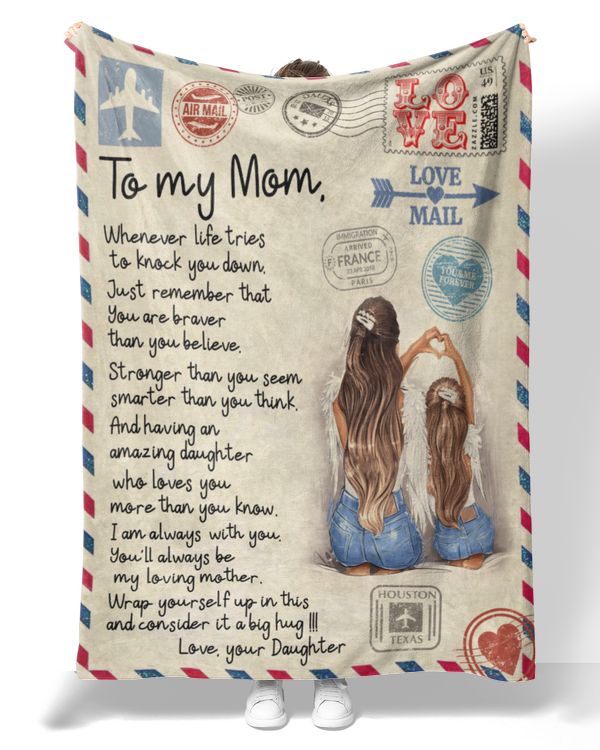 AIR MAIL
POST
LOVE
US 49
ZAZZLE.COM
To my Mom,
LOVE
MAIL
IMMIGRATION
ARRIVED
FRANCE
PARIS
YOU & ME
FOREVER
Whenever life tries
to knock you down,
Just remember that
You are braver
than you believe,
Stronger than you seem
smarter than you think,
And having an
amazing daughter
who loves you
more than you know.
I am always with you.
You'll always be
my loving mother.
Wrap yourself up in this
and consider it a big hug !!!
Love, your Daughter
HOUSTON
TEXAS